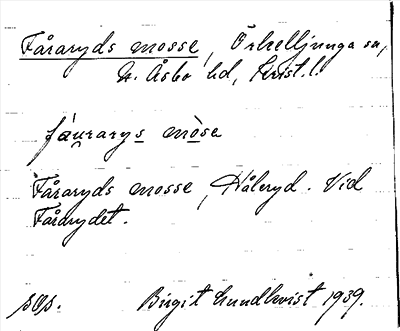 Fåraryds mosse, Örkelljunga sn,
N. Åsbo hd, Krist. l.
fáurarys mòsa
Fåraryds mosse, Håleryd. Vid
Fårarydet.
sOs. Birgit Lundkvist 1939.